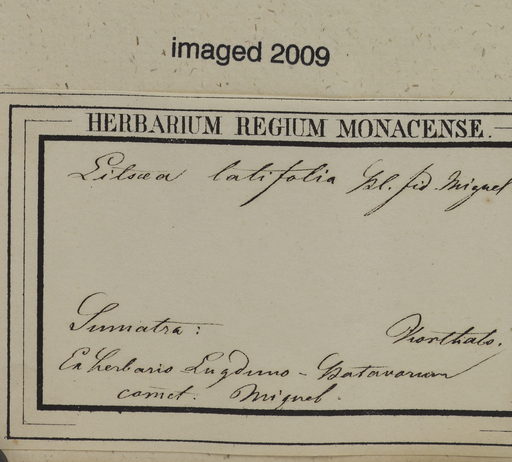 imaged 2009
HERBARIUM REGIUM MONACENSE.
Litsæa latifolia Bl. fid. Miquel
Sumatra: Korthals.
Ex herbario Lugduno-Batavorum
comct. Miquel.